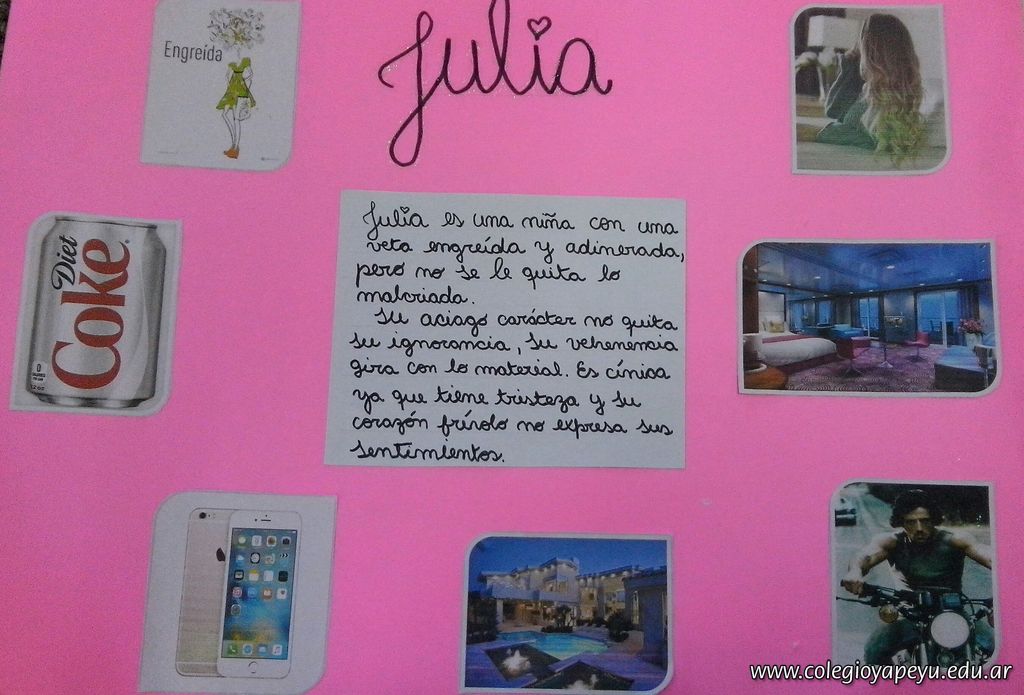 Engreída
Julia
Diet
Coke
Julia es una niña con una
veta engreída y adinerada,
pero no se le quita lo
malcriada.
Su aciago carácter no quita
su ignorancia, su vehemencia
gira con lo material. Es cínica
ya que tiene tristeza y su
corazón frívolo no expresa sus
sentimientos.
www.colegioyapeyu.edu.ar